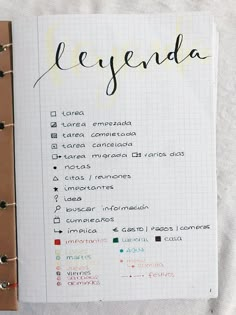 leyenda
tarea
tarea empezada
tarea completada
tarea cancelada
tarea migrada varios dias
notas
citas / reuniones
importantes
idea
buscar información
cumpleaños
implica € GASTO / PAGOS / compras
importantes casa
martes agua
viernes fechas